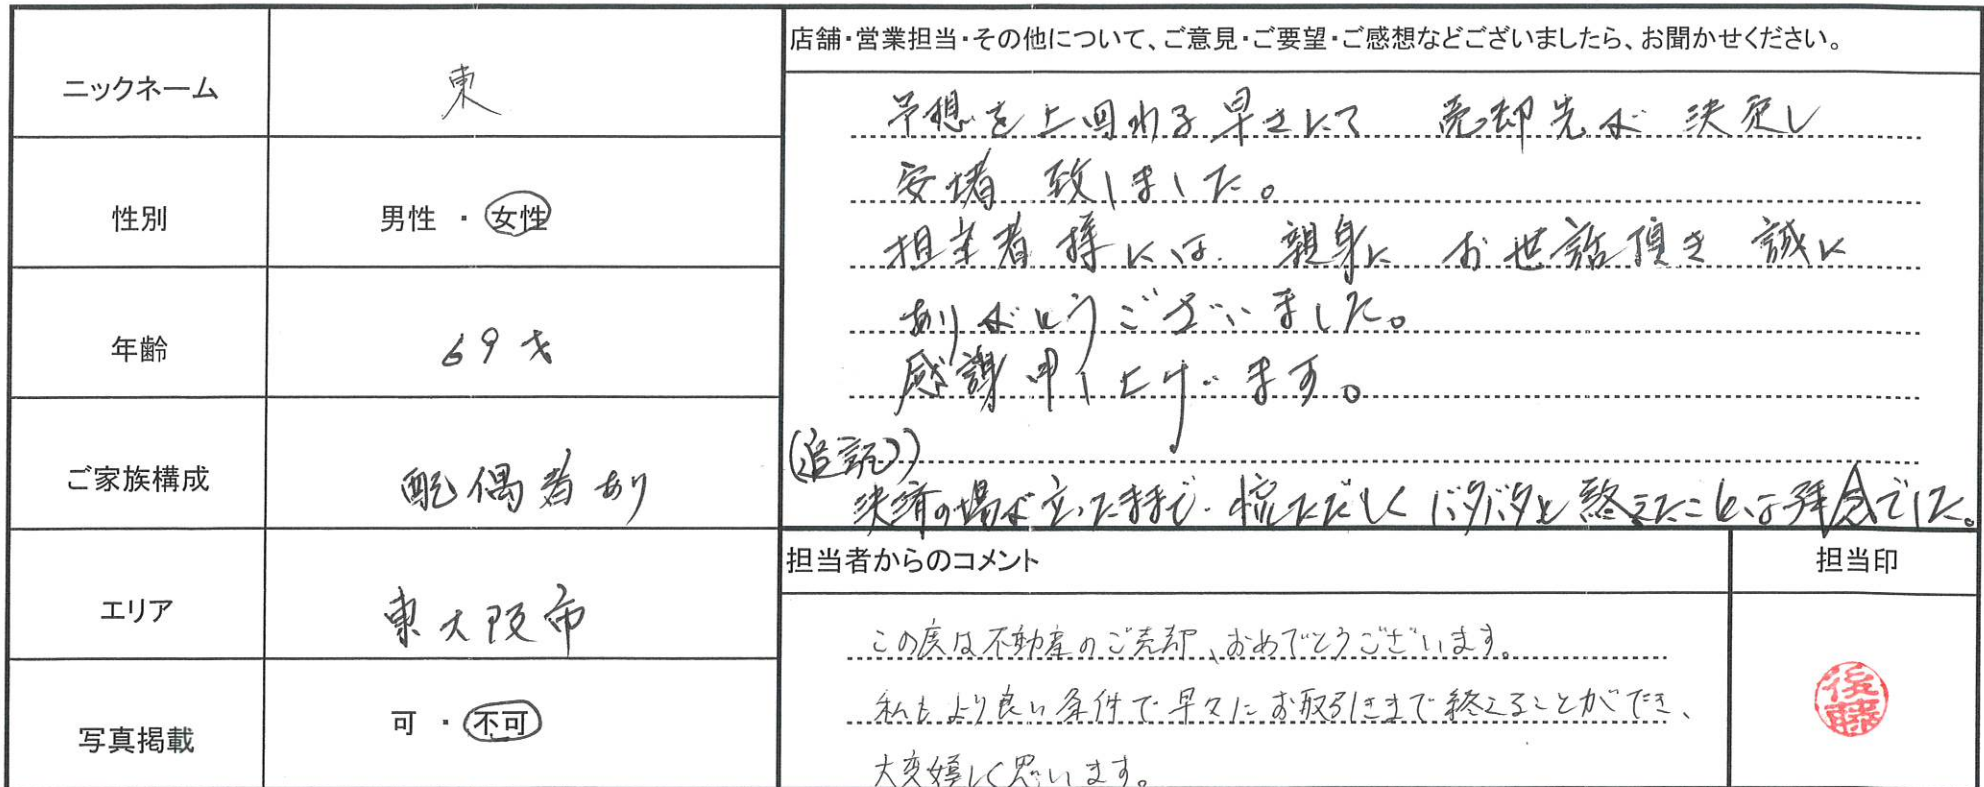 ニックネーム
東
性別
男性 ・ 女性
年齢
69才
ご家族構成
配偶者あり
エリア
東大阪市
写真掲載
可 ・ 不可
店舗・営業担当・その他について、ご意見・ご要望・ご感想などございましたら、お聞かせください。
予想を上回わる早さにて 売却先が 決定し
安堵 致しました。
担当者様には 親身に お世話頂き 誠に
ありがとうございました。
感謝申し上げます。
(追記)
決済の場が立ったままで 慌ただしく バタバタと 終えたことは残念でした。
担当者からのコメント
この度は不動産のご売却、おめでとうございます。
私もより良い条件で早々にお取引きまで終えることができ、
大変嬉しく思います。
担当印
後藤